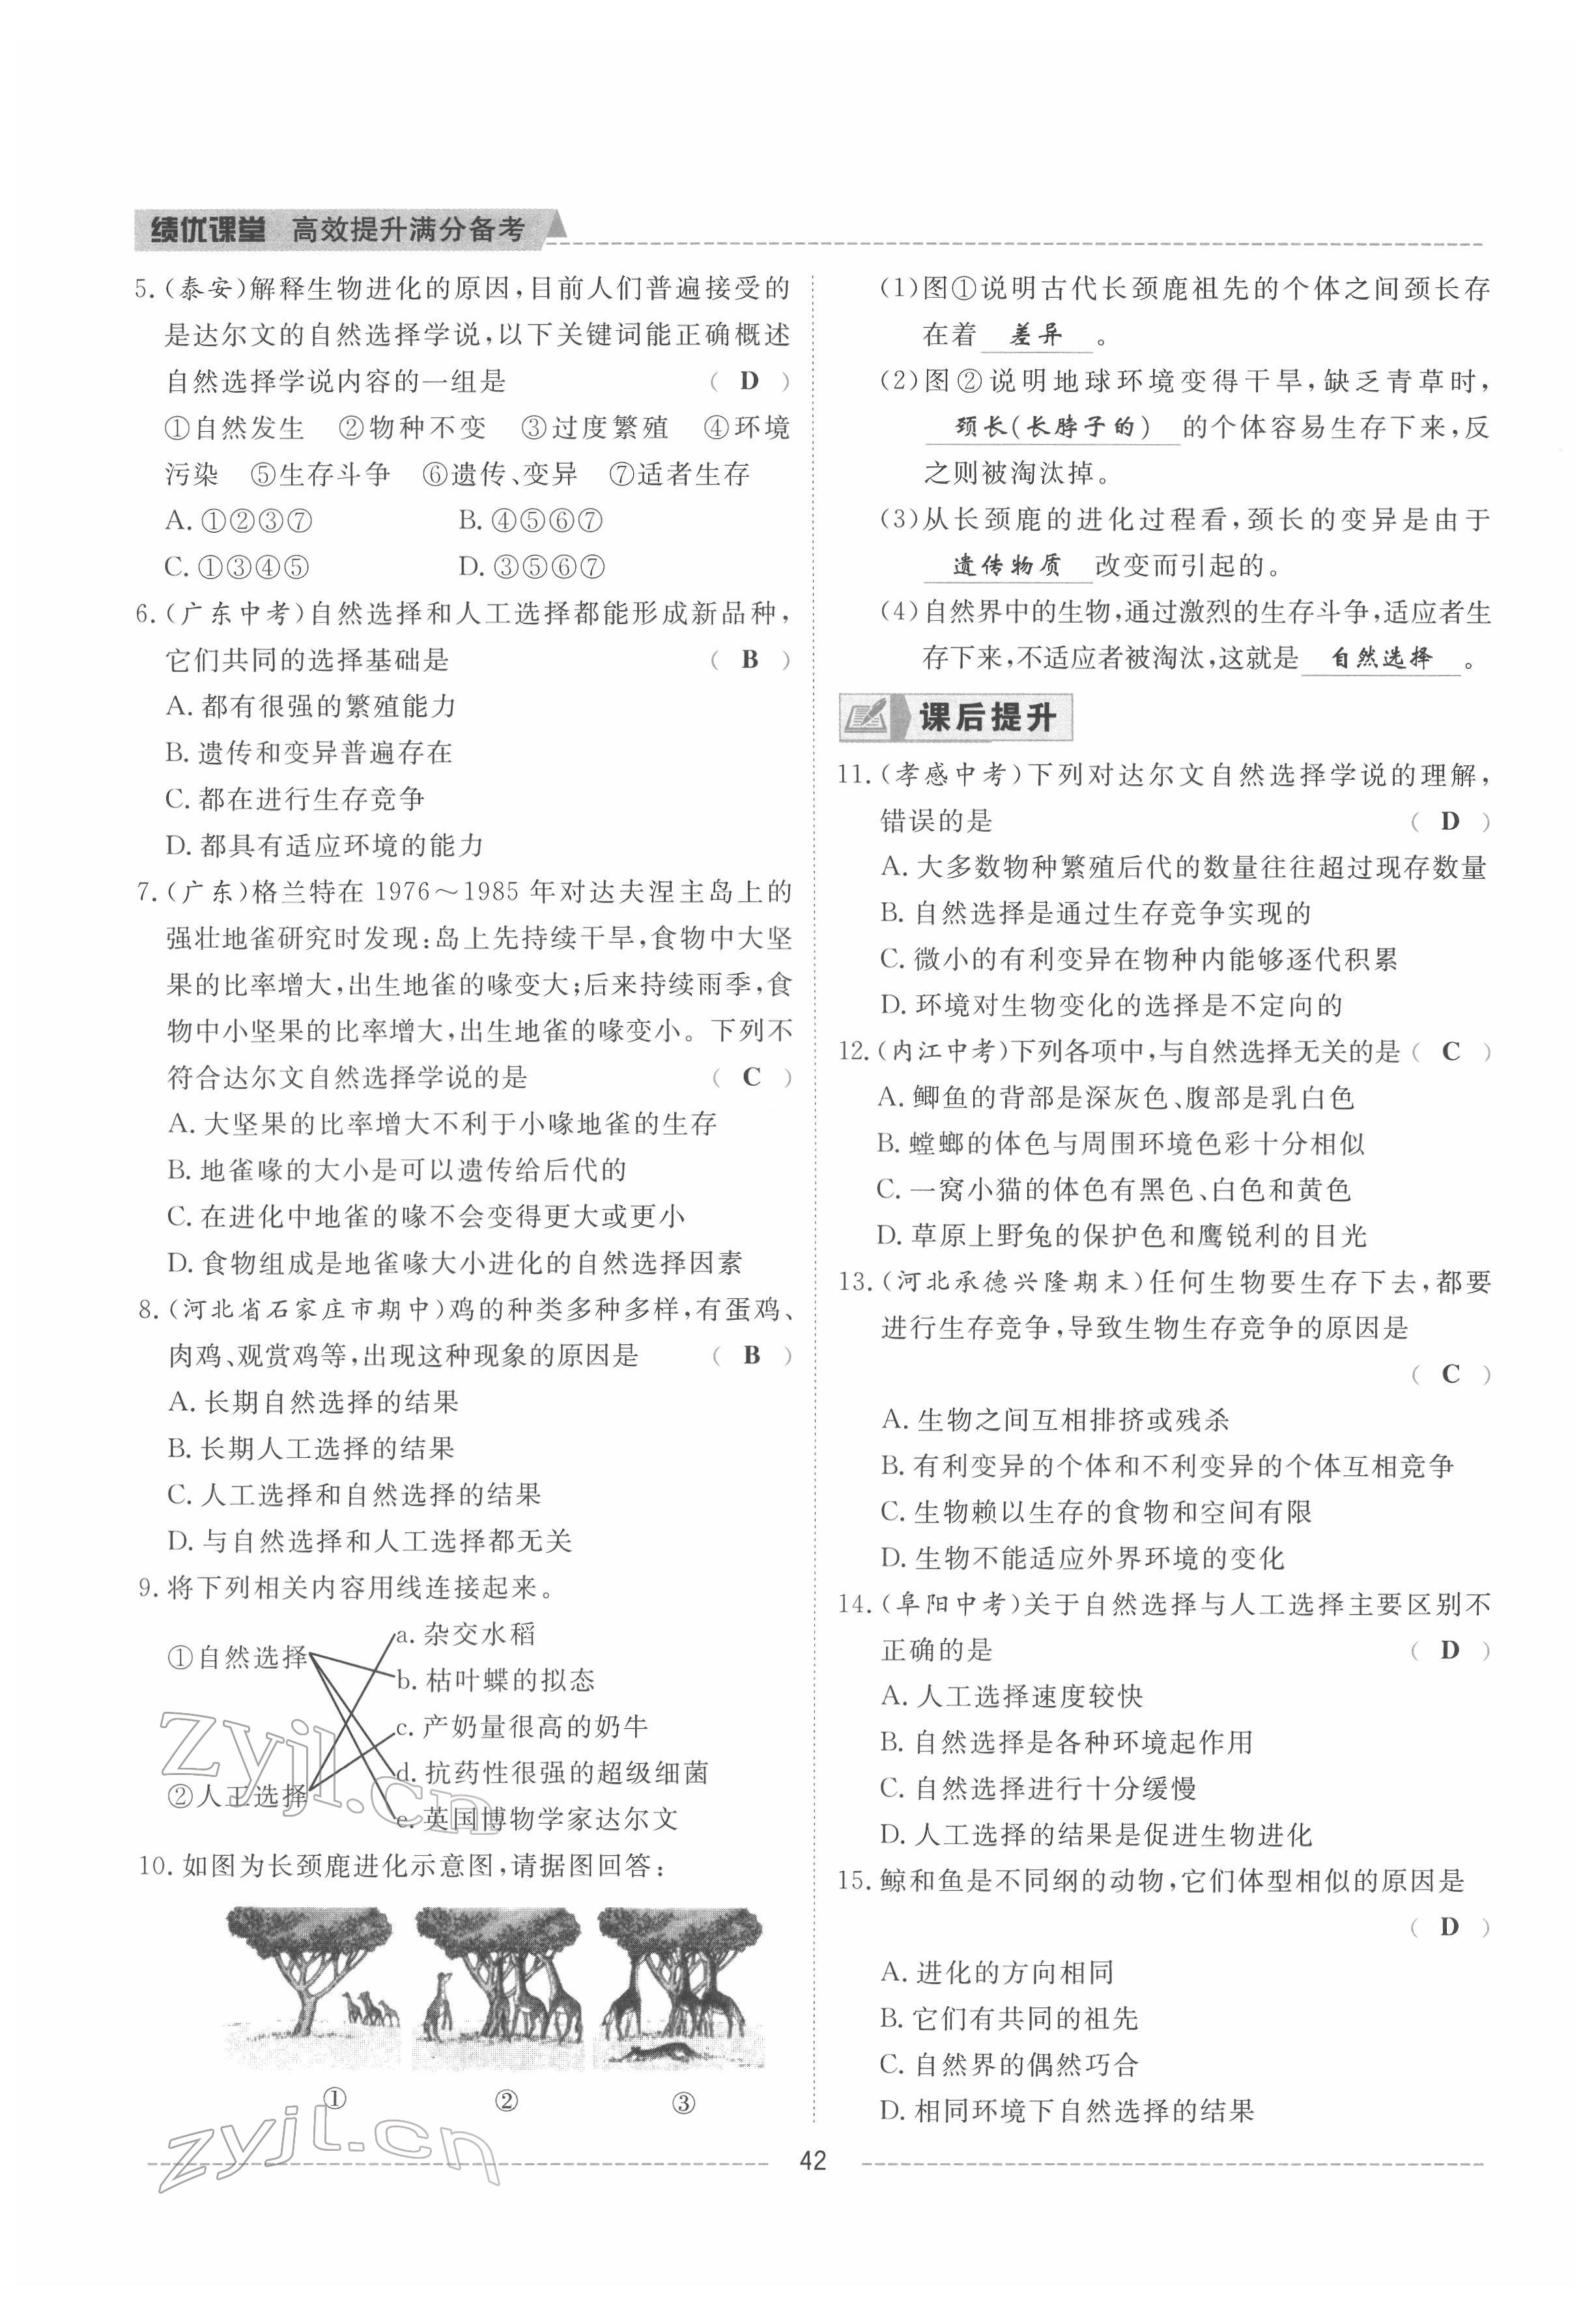 绩优课堂 高效提升满分备考
5.(泰安)解释生物进化的原因,目前人们普遍接受的
是达尔文的自然选择学说,以下关键词能正确概述
自然选择学说内容的一组是 ( D )
①自然发生 ②物种不变 ③过度繁殖 ④环境
污染 ⑤生存斗争 ⑥遗传、变异 ⑦适者生存
A.①②③⑦ B.④⑤⑥⑦
C.①③④⑤ D.③⑤⑥⑦
6.(广东中考)自然选择和人工选择都能形成新品种,
它们共同的选择基础是 ( B )
A.都有很强的繁殖能力
B.遗传和变异普遍存在
C.都在进行生存竞争
D.都具有适应环境的能力
7.(广东)格兰特在 1976～1985 年对达夫涅主岛上的
强壮地雀研究时发现:岛上先持续干旱,食物中大坚
果的比率增大,出生地雀的喙变大;后来持续雨季,食
物中小坚果的比率增大,出生地雀的喙变小。下列不
符合达尔文自然选择学说的是 ( C )
A.大坚果的比率增大不利于小喙地雀的生存
B.地雀喙的大小是可以遗传给后代的
C.在进化中地雀的喙不会变得更大或更小
D.食物组成是地雀喙大小进化的自然选择因素
8.(河北省石家庄市期中)鸡的种类多种多样,有蛋鸡、
肉鸡、观赏鸡等,出现这种现象的原因是 ( B )
A.长期自然选择的结果
B.长期人工选择的结果
C.人工选择和自然选择的结果
D.与自然选择和人工选择都无关
9.将下列相关内容用线连接起来。
a.杂交水稻
①自然选择
b.枯叶蝶的拟态
c.产奶量很高的奶牛
d.抗药性很强的超级细菌
②人工选择
e.英国博物学家达尔文
10.如图为长颈鹿进化示意图,请据图回答:
① ② ③
(1)图①说明古代长颈鹿祖先的个体之间颈长存
在着 差异 。
(2)图②说明地球环境变得干旱,缺乏青草时,
颈长(长脖子的) 的个体容易生存下来,反
之则被淘汰掉。
(3)从长颈鹿的进化过程看,颈长的变异是由于
遗传物质 改变而引起的。
(4)自然界中的生物,通过激烈的生存斗争,适应者生
存下来,不适应者被淘汰,这就是 自然选择 。
课后提升
11.(孝感中考)下列对达尔文自然选择学说的理解,
错误的是 ( D )
A.大多数物种繁殖后代的数量往往超过现存数量
B.自然选择是通过生存竞争实现的
C.微小的有利变异在物种内能够逐代积累
D.环境对生物变化的选择是不定向的
12.(内江中考)下列各项中,与自然选择无关的是( C )
A.鲫鱼的背部是深灰色、腹部是乳白色
B.螳螂的体色与周围环境色彩十分相似
C.一窝小猫的体色有黑色、白色和黄色
D.草原上野兔的保护色和鹰锐利的目光
13.(河北承德兴隆期末)任何生物要生存下去,都要
进行生存竞争,导致生物生存竞争的原因是
( C )
A.生物之间互相排挤或残杀
B.有利变异的个体和不利变异的个体互相竞争
C.生物赖以生存的食物和空间有限
D.生物不能适应外界环境的变化
14.(阜阳中考)关于自然选择与人工选择主要区别不
正确的是 ( D )
A.人工选择速度较快
B.自然选择是各种环境起作用
C.自然选择进行十分缓慢
D.人工选择的结果是促进生物进化
15.鲸和鱼是不同纲的动物,它们体型相似的原因是
( D )
A.进化的方向相同
B.它们有共同的祖先
C.自然界的偶然巧合
D.相同环境下自然选择的结果
zyjl.cn
zyjl.cn
42